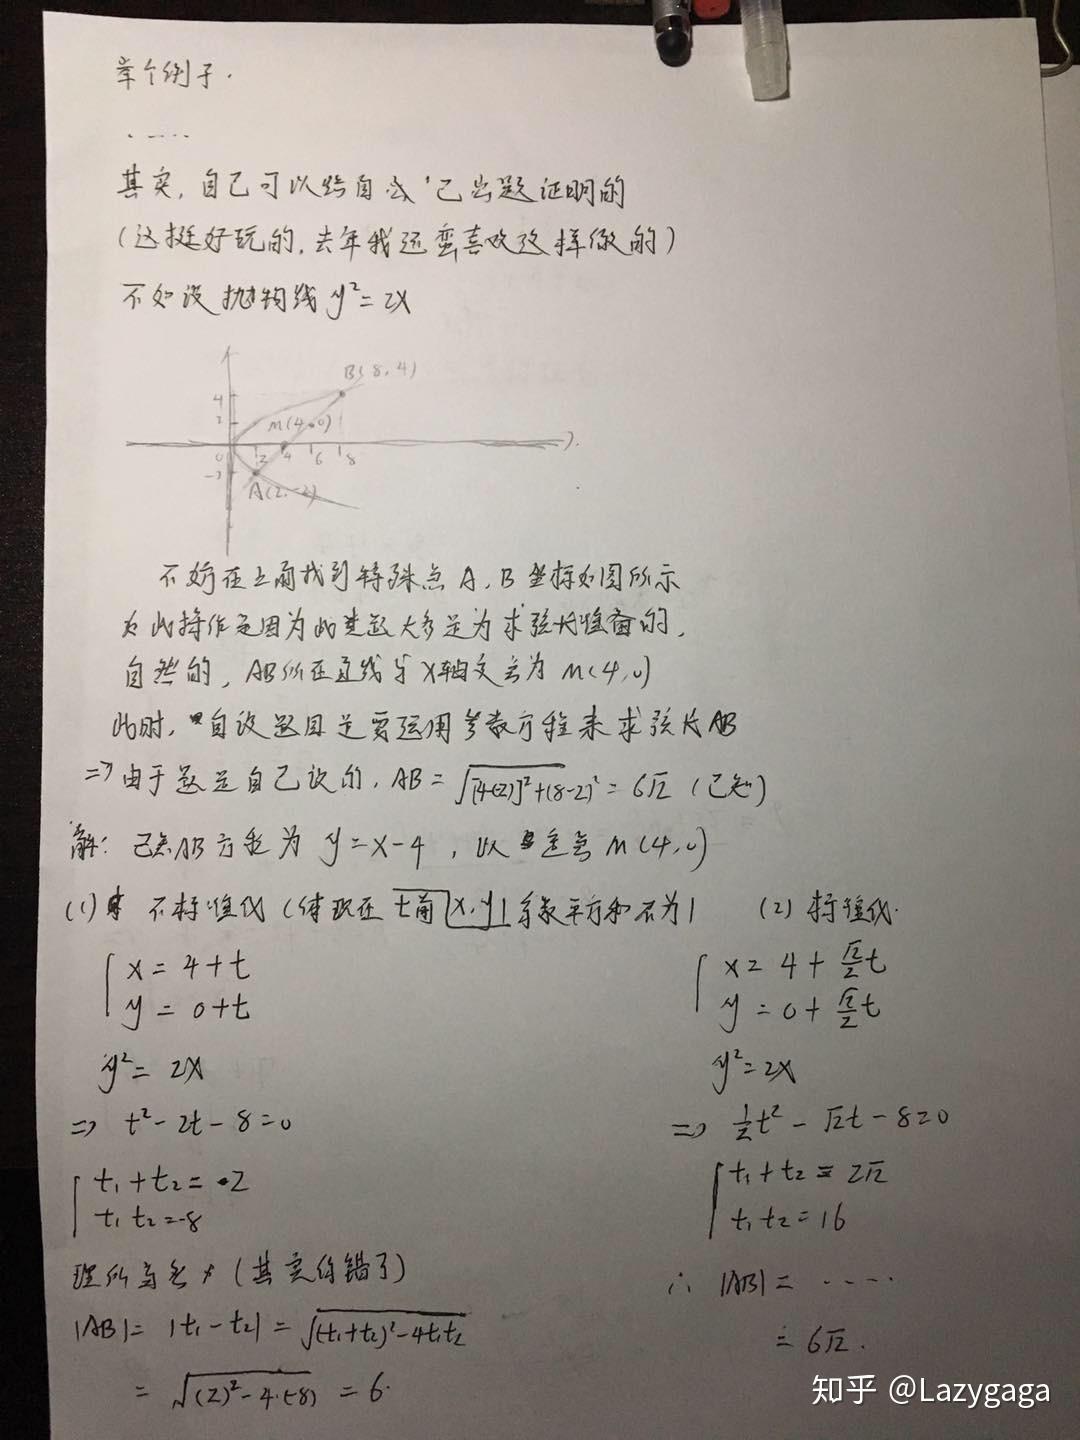 举个例子.
.....
其实, 自己可以给自 己出题证明的
(这挺好玩的, 去年我还蛮喜欢这样做的)
不如设抛物线 y²=2x
B(8,4)
4
2
M(4,0)
0 2 4 6 8
-2
A(2,-2)
不妨在上面找到特殊点 A, B 坐标如图所示
此操作是因为此类题大多是为求弦长准备的,
自然的, AB所在直线与X轴交点为 M(4,0)
此时, 自设题目是要运用参数方程来求弦长AB
=> 由于题是自己设的, AB = √[4-(-2)]²+(8-2)² = 6√2 (已知)
解: 已知AB方程为 y=x-4, 以 定点 M(4,0)
(1) 不标准代 (体现在 t前 x,y 系数平方和不为1
(2) 标准代.
x = 4+t
y = 0+t
y² = 2x
=> t²-2t-8=0
t₁+t₂ = 2
t₁t₂=-8
理所当然 (其实你错了)
|AB| = |t₁-t₂| = √(t₁+t₂)²-4t₁t₂
= √(2)²-4·(-8) = 6.
x = 4 + √2/2 t
y = 0 + √2/2 t
y²=2x
=> 1/2 t² - √2t - 8=0
t₁+t₂ = 2√2
t₁t₂=16
∴ |AB| = .....
= 6√2.
知乎 @Lazygaga